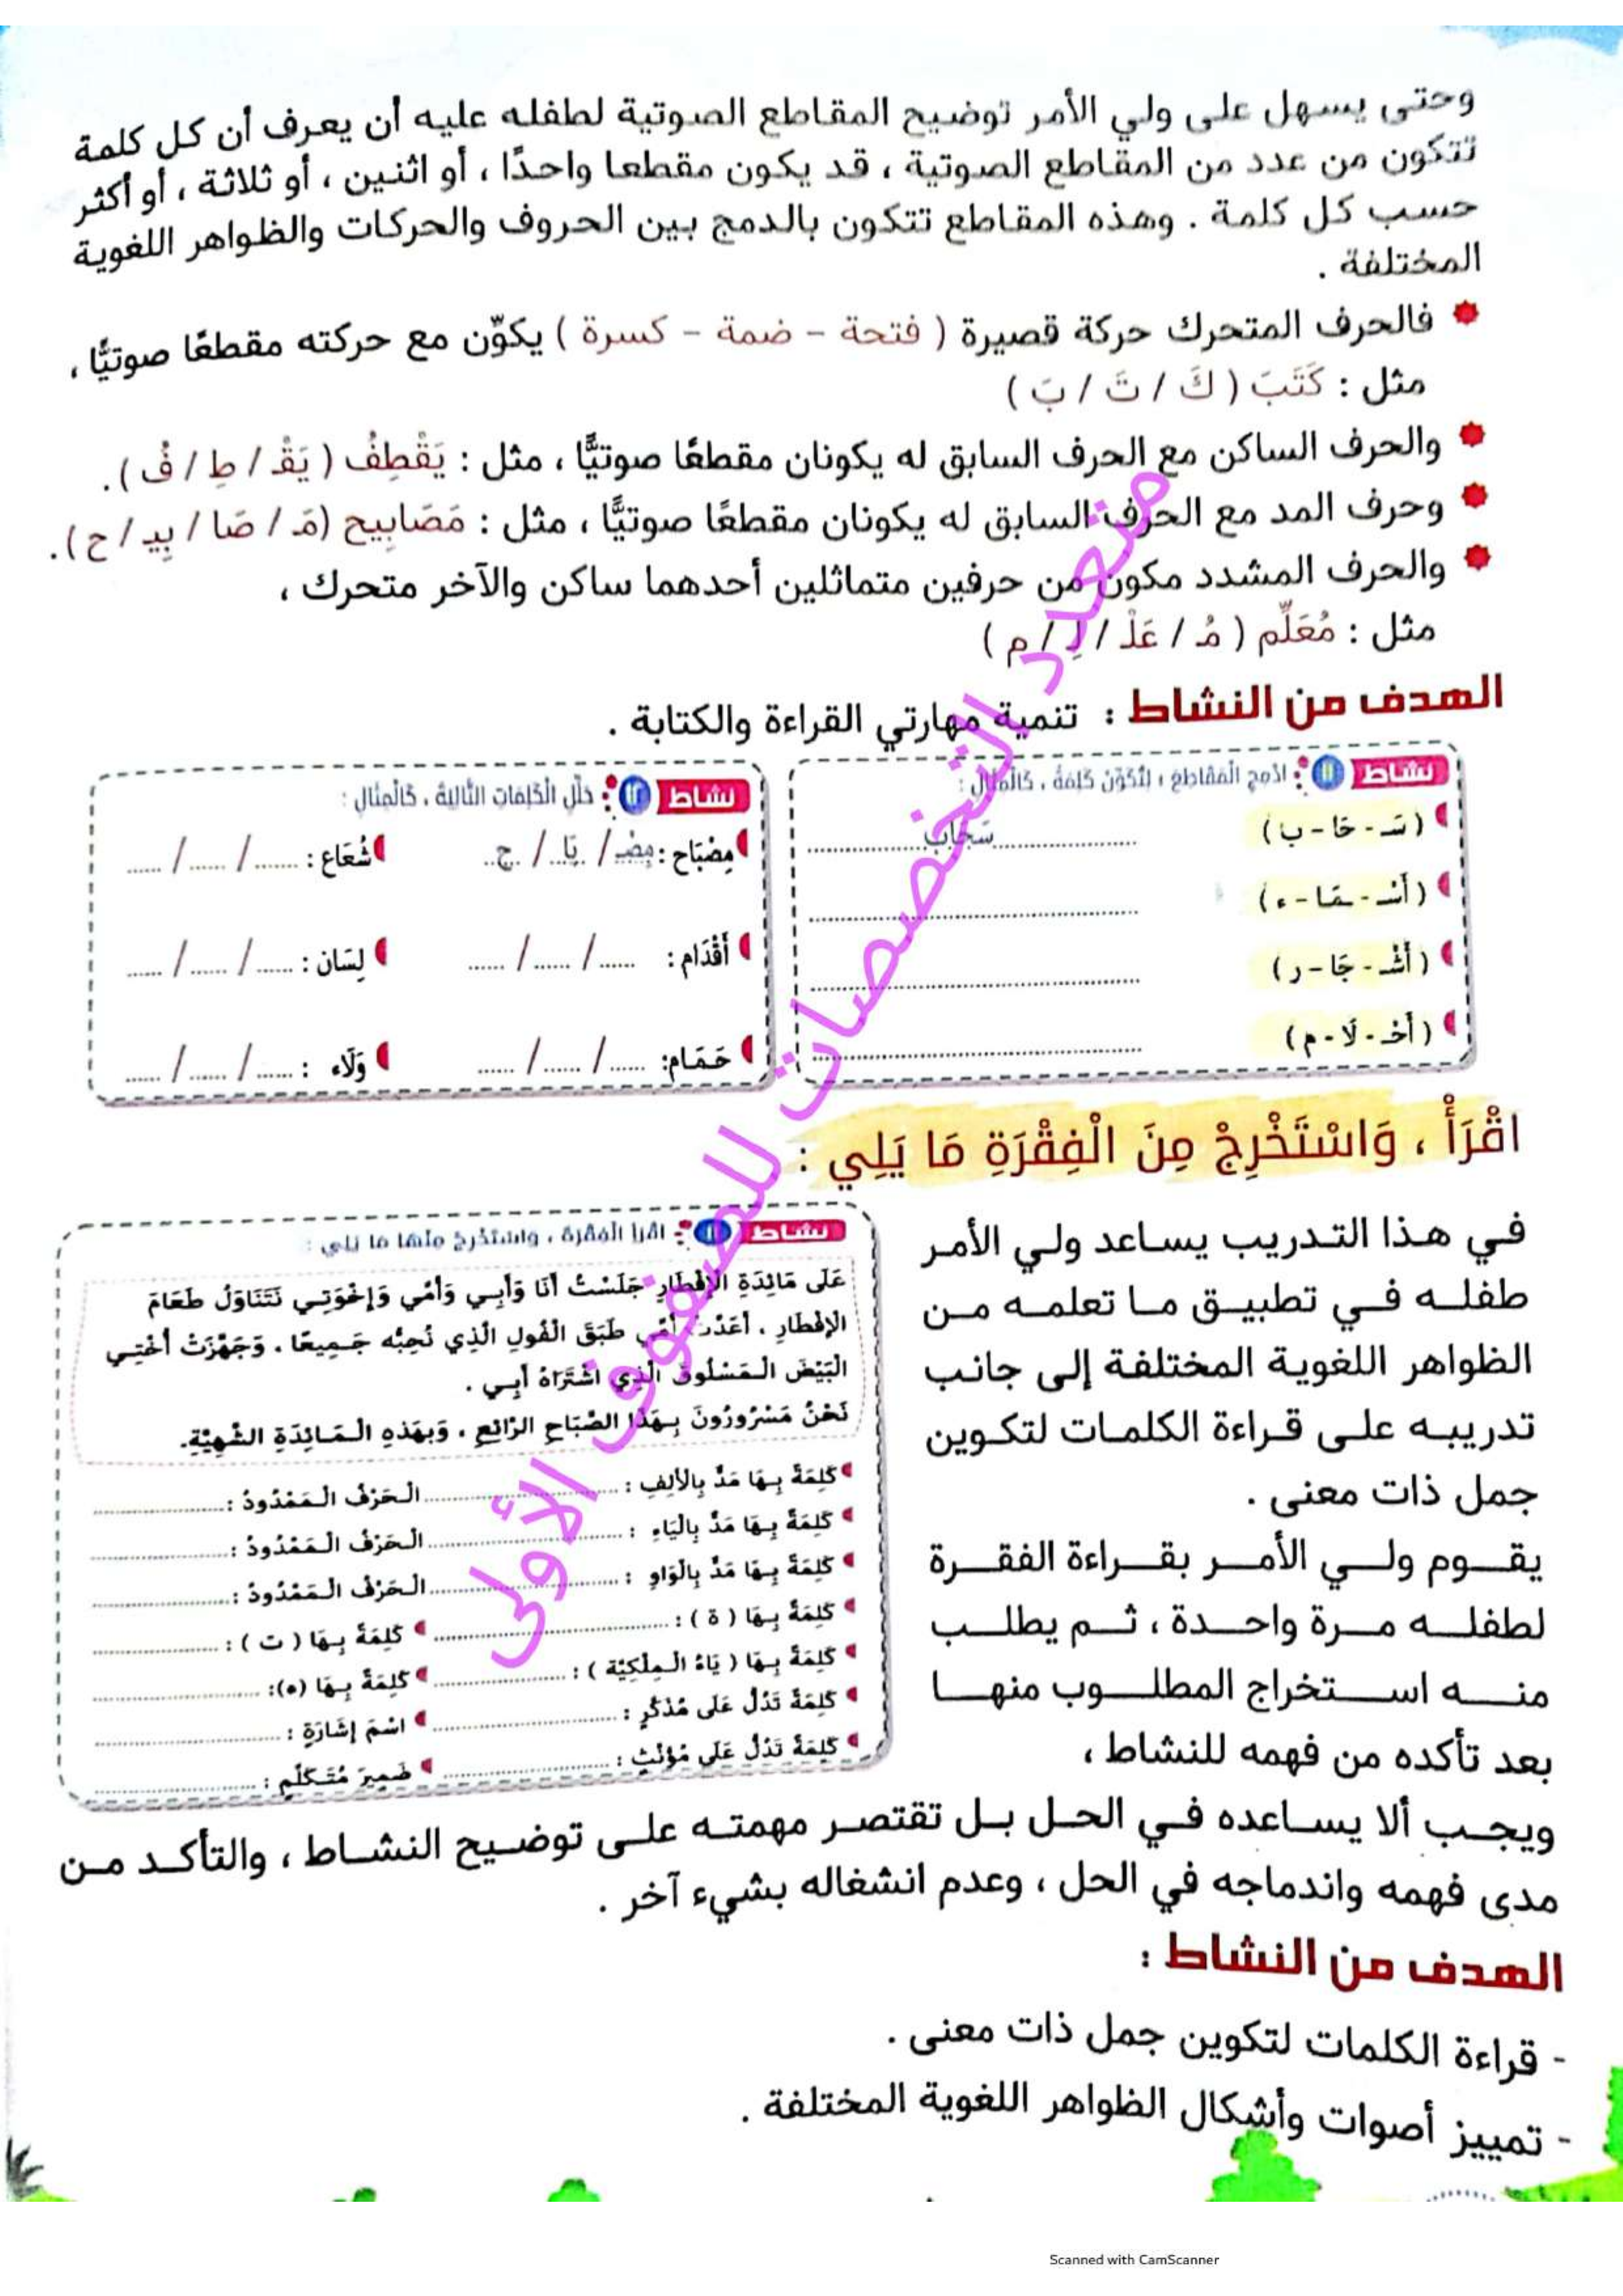 وحتى يسهل على ولي الأمر توضيح المقاطع الصوتية لطفله عليه أن يعرف أن كل كلمة
تتكون من عدد من المقاطع الصوتية ، قد يكون مقطعا واحدًا ، أو اثنين ، أو ثلاثة ، أو أكثر
حسب كل كلمة . وهذه المقاطع تتكون بالدمج بين الحروف والحركات والظواهر اللغوية
المختلفة .
فالحرف المتحرك حركة قصيرة ( فتحة - ضمة - كسرة ) يكوّن مع حركته مقطعًا صوتيًّا ،
مثل : كَتَبَ ( كَ / تَ / بَ )
والحرف الساكن مع الحرف السابق له يكونان مقطعًا صوتيًّا ، مثل : يَقْطِفُ ( يَقْـ / طِ / فُ ).
وحرف المد مع الحرف السابق له يكونان مقطعًا صوتيًّا ، مثل : مَصَابِيح (مَـ / صَا / بِيـ / ح ).
والحرف المشدد مكون من حرفين متماثلين أحدهما ساكن والآخر متحرك ،
مثل : مُعَلِّم ( مُـ / عَلْـ / لِـ / م )
الهدف من النشاط : تنمية مهارتي القراءة والكتابة .
نشاط ١١ : ادْمِجِ الْمَقَاطِعَ ؛ لِتُكَوِّنَ كَلِمَةً ، كَالْمِثَالِ :
( سَـ - حَا - ب ) سَحَاب
( أَسْـ - مَا - ء )
( أَشْـ - جَا - ر )
( أَحْـ - لَا - م )
نشاط ١٢ : حَلِّلِ الْكَلِمَاتِ التَّالِيَةَ ، كَالْمِثَالِ :
مِصْبَاح : مِصْـ / بَا / ح شُعَاع : ...... / ...... / ......
أَقْدَام : ...... / ...... / ...... لِسَان : ...... / ...... / ......
حَمَام : ...... / ...... / ...... وَلَاء : ...... / ...... / ......
اقْرَأْ ، وَاسْتَخْرِجْ مِنَ الْفِقْرَةِ مَا يَلِي :
في هذا التدريب يساعد ولي الأمر
طفله في تطبيق ما تعلمه من
الظواهر اللغوية المختلفة إلى جانب
تدريبه على قراءة الكلمات لتكوين
جمل ذات معنى .
يقوم ولي الأمر بقراءة الفقرة
لطفله مرة واحدة ، ثم يطلب
منه استخراج المطلوب منها
بعد تأكده من فهمه للنشاط ،
نشاط : اقْرَأِ الْفِقْرَةَ ، وَاسْتَخْرِجْ مِنْهَا مَا يَلِي :
عَلَى مَائِدَةِ الْإِفْطَارِ جَلَسْتُ أَنَا وَأَبِي وَأُمِّي وَإِخْوَتِي نَتَنَاوَلُ طَعَامَ
الْإِفْطَارِ ، أَعَدَّتْ أُمِّي طَبَقَ الْفُولِ الَّذِي نُحِبُّه جَمِيعًا ، وَجَهَّزَتْ أُخْتِي
الْبَيْضَ الْمَسْلُوقَ الَّذِي اشْتَرَاهُ أَبِي .
نَحْنُ مَسْرُورُونَ بِهَذَا الصَّبَاحِ الرَّائِعِ ، وَبِهَذِهِ الْمَائِدَةِ الشَّهِيَّةِ.
كَلِمَةً بِهَا مَدٌّ بِالْأَلِفِ : الْحَرْفُ الْمَمْدُودُ :
كَلِمَةً بِهَا مَدٌّ بِالْيَاءِ : الْحَرْفُ الْمَمْدُودُ :
كَلِمَةً بِهَا مَدٌّ بِالْوَاوِ : الْحَرْفُ الْمَمْدُودُ :
كَلِمَةً بِهَا ( ة ) : كَلِمَةً بِهَا ( ت ) :
كَلِمَةً بِهَا ( يَاءُ الْمِلْكِيَّة ) : كَلِمَةً بِهَا (ه):
كَلِمَةً تَدُلُّ عَلَى مُذَكَّرٍ : اسْمَ إِشَارَةٍ :
كَلِمَةً تَدُلُّ عَلَى مُؤَنَّثٍ : ضَمِيرَ مُتَكَلِّمٍ :
ويجب ألا يساعده في الحل بل تقتصر مهمته على توضيح النشاط ، والتأكد من
مدى فهمه واندماجه في الحل ، وعدم انشغاله بشيء آخر .
الهدف من النشاط :
- قراءة الكلمات لتكوين جمل ذات معنى .
- تمييز أصوات وأشكال الظواهر اللغوية المختلفة .
متعدد التخصصات للصفوف الأولى
Scanned with CamScanner